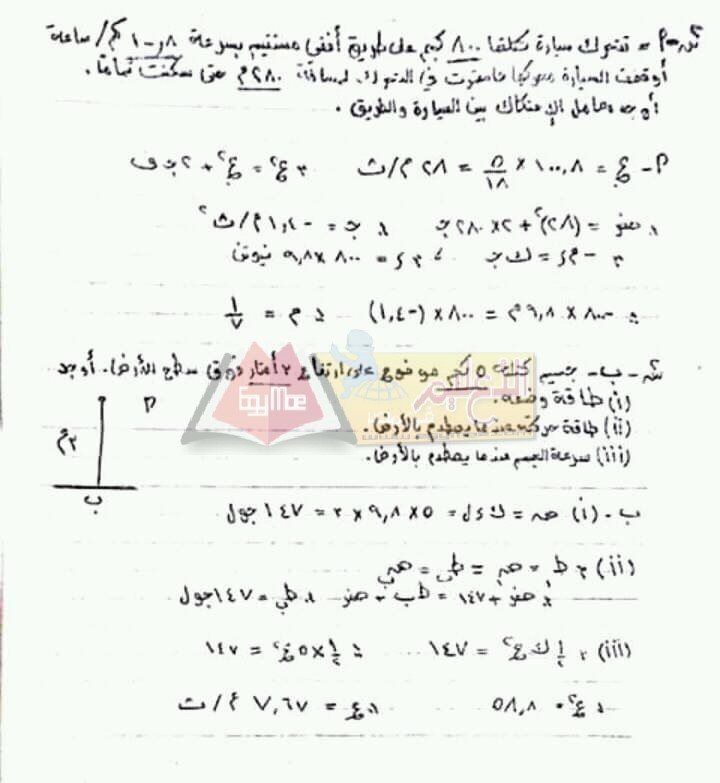 تتحرك سيارة كتلتها ٨٠٠ كجم على طريق أفقى مستقيم بسرعة ١٠٠,٨ كم/ساعة
أوقفت السيارة محركها فاستمرت فى التحرك لمسافة ٢٨٠م حتى سكنت تماماً.
أوجد معامل الإحتكاك بين السيارة والطريق.
م - ع. = ١٠٠,٨ × ٥/١٨ = ٢٨ م/ث ∵ ع٢ = ع.٢ + ٢ جـ ف
∴ صفر = (٢٨)٢ + ٢ × ٢٨٠ جـ ∴ جـ = -١,٤٠ م/ث٢
∵ - م ر = ك جـ ∵ ر = ٨٠٠ × ٩,٨ نيوتن
∴ - ٨٠٠ × ٩,٨ م = ٨٠٠ × (-١,٤٠) ∴ م = ١/٧
ب - جسم كتلته ٥ كجم موضوع على ارتفاع ٣ أمتار فوق سطح الأرض. أوجد
(i) طاقة وضعه.
(ii) طاقة حركته عندما يصطدم بالأرض.
(iii) سرعة الجسم عندما يصطدم بالأرض.
٣م
ب
ب - (i) ضـ = ك ء ل = ٥ × ٩,٨ × ٣ = ١٤٧ جول
(ii) ∵ ط + ضـ = طب + ضب
∴ صفر + ١٤٧ = طب + صفر ∴ طب = ١٤٧ جول
(iii) ∵ ١/٢ ك ع٢ = ١٤٧ ∴ ١/٢ × ٥ ع٢ = ١٤٧
∴ ع٢ = ٥٨,٨ ∴ ع = ٧,٦٧ م/ث